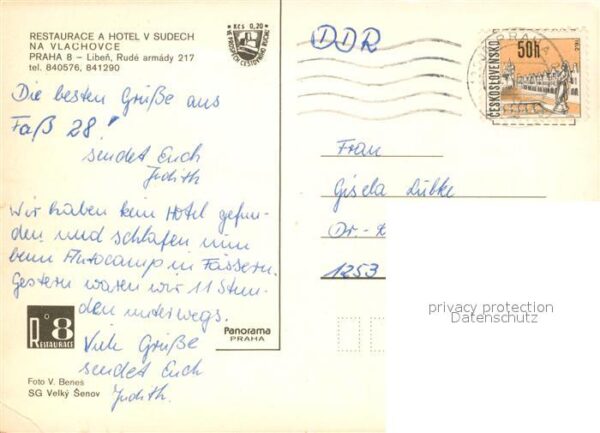 RESTAURACE A HOTEL V SUDECH
NA VLACHOVCE
PRAHA 8 – Libeň, Rudé armády 217
tel. 840576, 841290
Kčs 0,20
Die besten Grüße aus
Faß 28!
sendet Euch
Judith
Wir haben kein Hotel gefun-
den und schlafen nun
beim Autocamp in Fässern.
Gestern waren wir 11 Stun-
den unterwegs.
Viele Grüße
sendet Euch
Judith.
R 8
RESTAURACE
Panorama
PRAHA
Foto V. Beneš
SG Velký Šenov
DDR
PRAHA
ČESKOSLOVENSKO
50h
Frau
Gisela Lübke
Dr.-
1253
privacy protection
Datenschutz